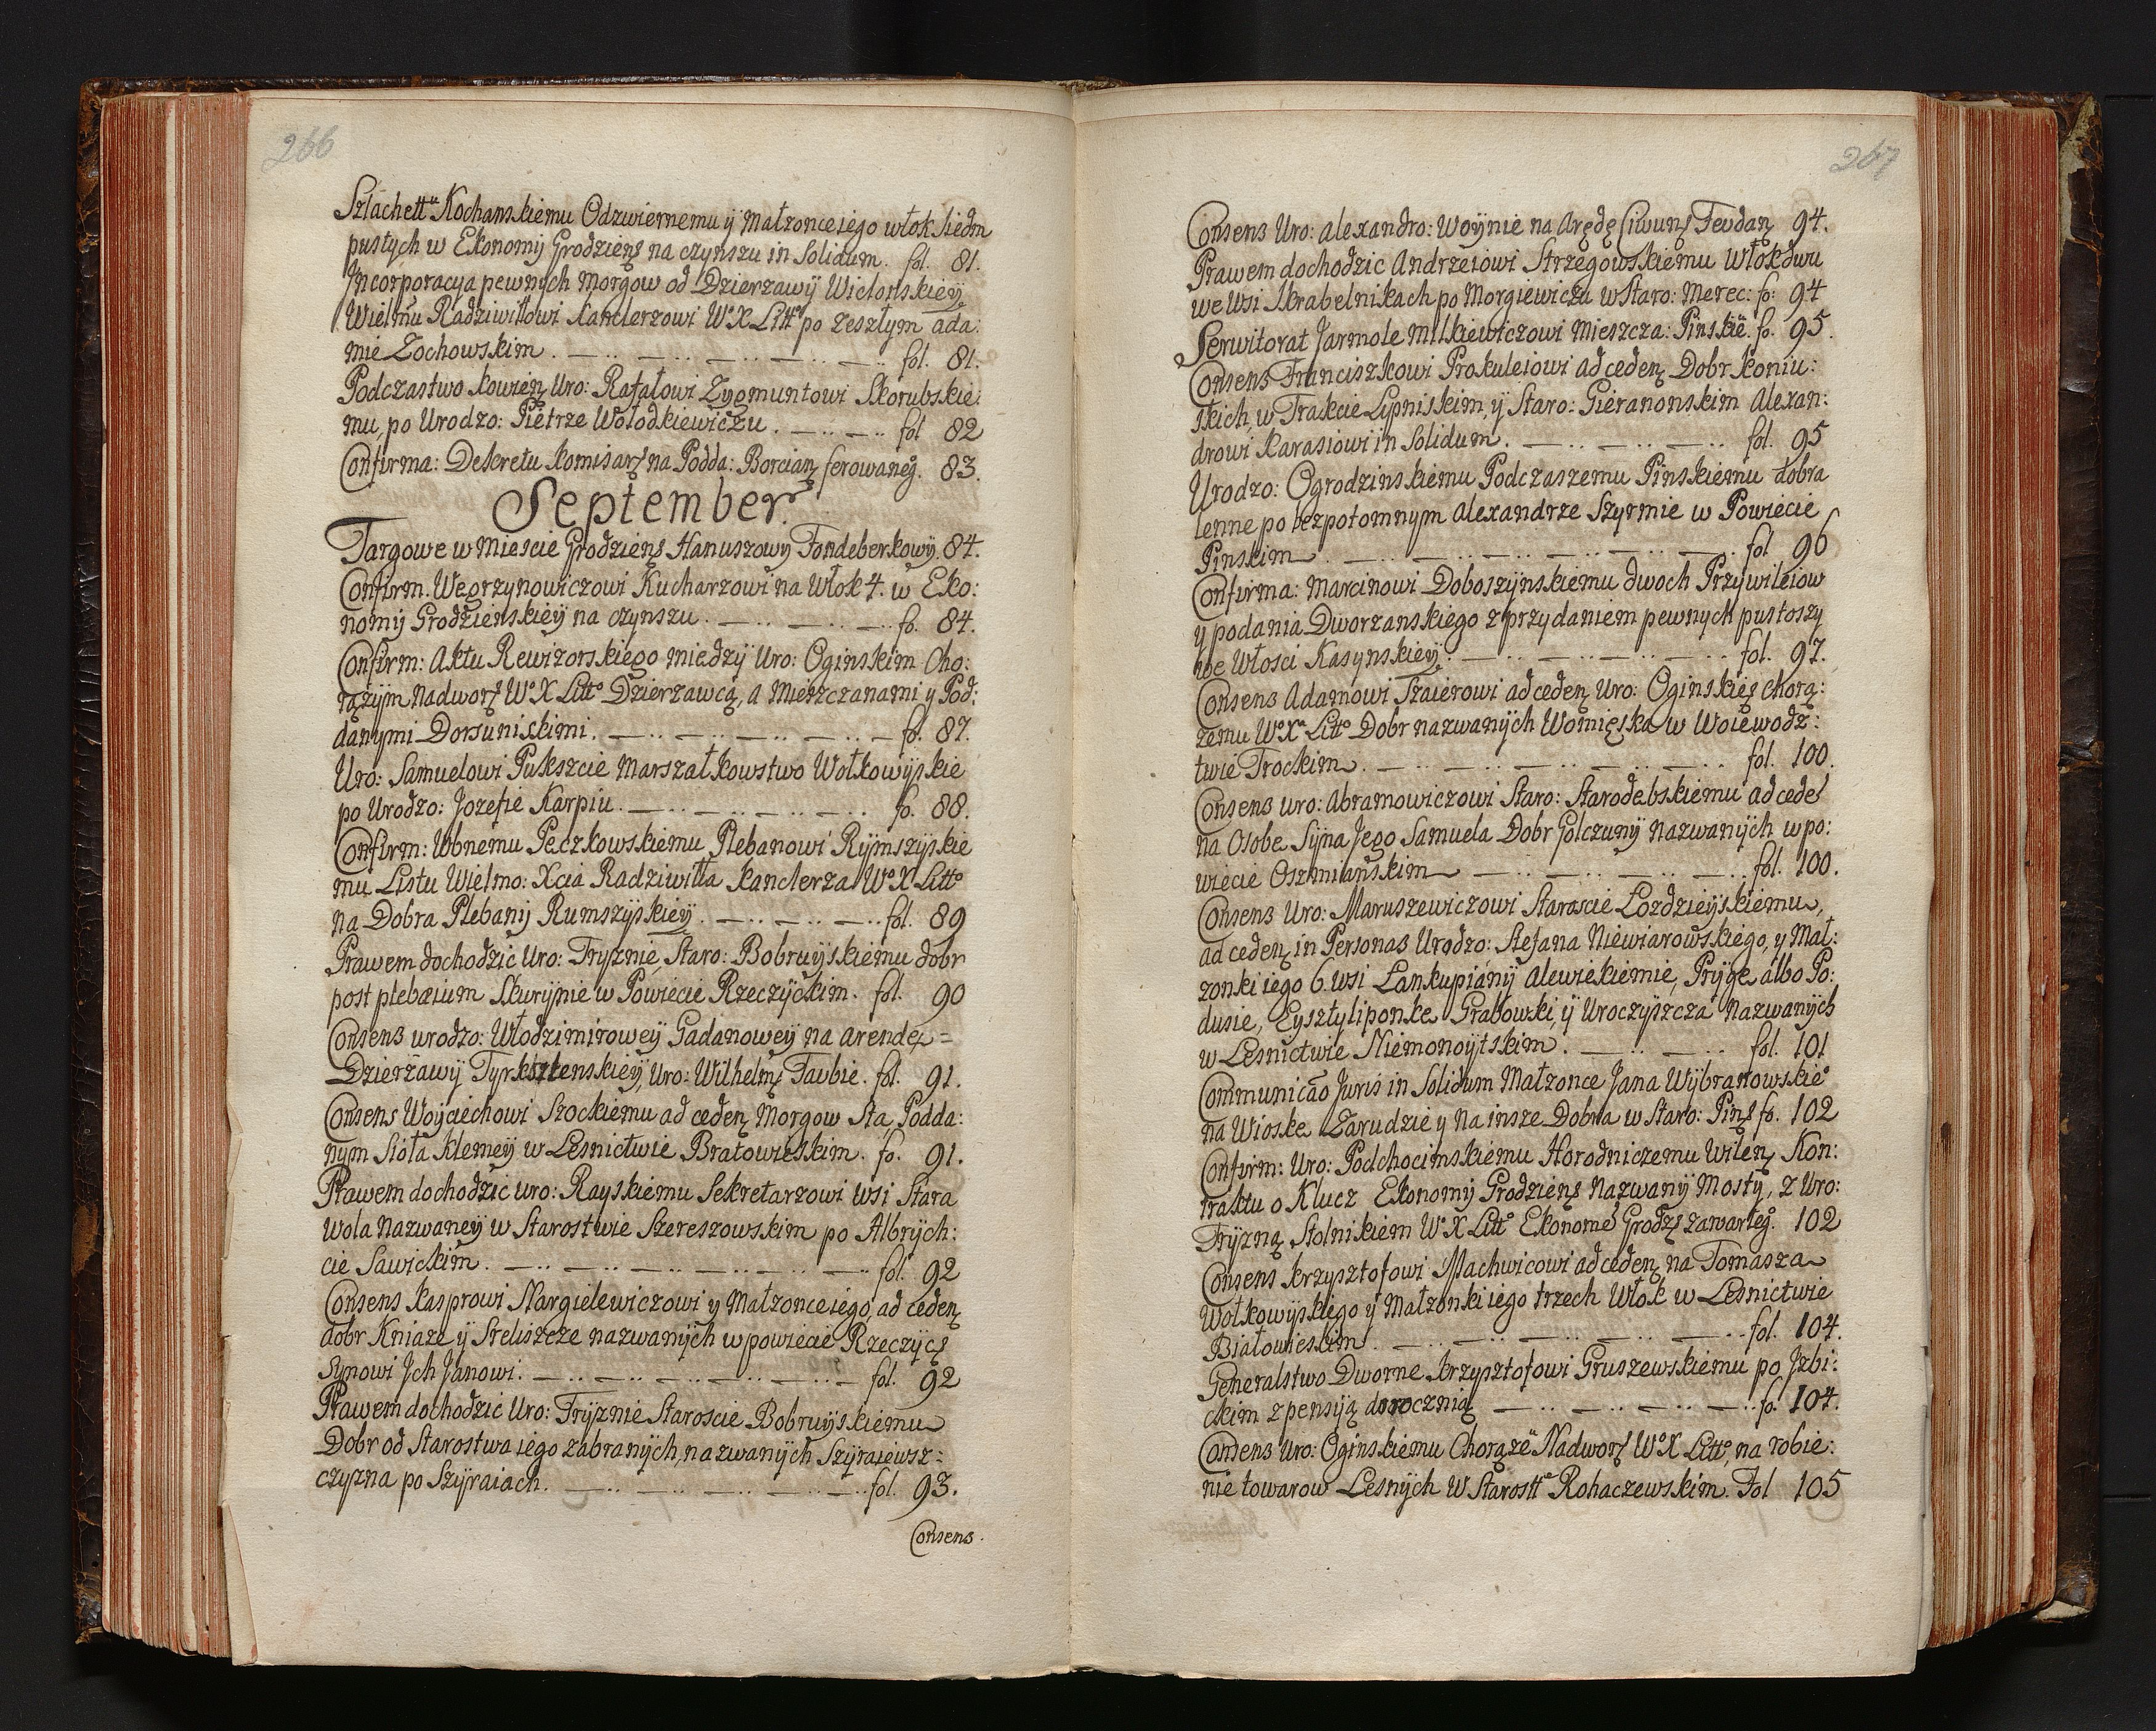 266
Szlachettu Kochanskiemu Odzwiernemu ÿ Małzonce iego włok siedm
pustych w Ekonomÿ Grodzienz na czynszu in Solidum. fol. 81.
Incorporacya pewnych Morgow od Dzierzawÿ Wielonskieÿ
Wielmu Radziwiłłowi Kanclerzowi WoXLitto po zeszłym ada:
mie Zochowskim. fol. 81.
Podczastwo Kowienz Uro: Rafałowi Zygmuntowi Skorubskie:
mu, po Urodzo: Pietrze Wołodkiewiczu. fol 82
Confirma: Dekretu Komisarz na Podda: Borcianz ferowaneg. 83.
September.
Targowe w Miescie Grodzienz Hanuszowÿ Fondeberkowÿ. 84.
Confirm. Węgrzynowiczowi Kucharzowi na Włok 4. w Eko:
nomÿ Grodzienskieÿ na czynszu. fo. 84.
Confirm: Aktu Rewizorskiego miedzÿ Uro: Oginskim Cho:
rązÿm Nadworz WoX Litto Dzierzawcą, a Mieszczanami y Pod:
danymi Dorsuniskimi. fo. 87.
Uro: Samuelowi Pukszcie Marszałkowstwo Wołkowÿskie
po Urodzo: Jozefie Karpiu. fo. 88.
Confirm: Wbnemu Peczkowskiemu Plebanowi Rÿmszÿskie
mu Listu Wielmo: Xcia Radziwiłła Kanclerza WoX Litto
na Dobra Plebanÿ Rumszÿskieÿ. fol. 89
Prawem dochodzic Uro: Fryznie, Staro: Bobruÿskiemu dobr
post plebæium Skurÿnie w Powiecie Rzeczÿckim. fol. 90
Consens urodzo: Włodzimirowey Gadanowey na arende =
Dzierzawÿ Tyrkszlenskieÿ, Uro: Wilhelmz Taubie. fol. 91.
Consens Woyciechowi Szockiemu ad cedenz Morgow Sta Podda:
nym Sioła Klemeÿ w Lesnictwie Bratowieskim. fo. 91.
Prawem dochodzic uro: Rayskiemu Sekretarzowi wsi Stara
Wola Nazwaneÿ w Starostwie Szereszowskim po Albrÿch:
cie Sawickim. fol. 92
Consens Kasprowi Nargielewiczowi y Małzonce iego, ad cedenz
dobr Kniaze ÿ Sreliszcze nazwanÿch w powiecie Rzeczÿcz
Synowi Jch Janowi. fol. 92
Prawem dochodzic Uro: Frÿznie Staroscie Bobruÿskiemu
Dobr od Starostwa iego zabranÿch, nazwanÿch Szÿraiewsz:
czyzna po Szÿraiach. fol. 93.
Consens.
267
Consens Uro: Alexandro: Woÿnie na Arędę Ciwunz Feudanz 94.
Prawem dochodzic Andrzeiowi Strzegowskiemu Włok dwu
we Wsi Skrabelnikach po Morgiewiczu w Staro: Merec: fo: 94
Serwitorat Jarmole Milkiewiczowi Mieszcza: Pinskie. fo. 95.
Consens Franciszkowi Prokuleiowi ad cedenz Dobr Koniu:
skich, w Trakcie Lipniskim, ÿ Staro: Gieranonskim Alexan:
drowi Karasiowi in Solidum. fol. 95
Urodzo: Ogrodzinskiemu Podczaszemu Pinskiemu dobra
lenne po bezpotomnym Alexandrze Szyrmie w Powiecie
Pinskim. fol 96
Confirma: Marcinowi Doboszÿnskiemu dwoch Przÿwileiow
y podania Dworzanskiego z przydaniem pewnych pustoszy
we Włosci Kasynskieÿ. fol. 97.
Consens Adamowi Szaierowi ad cedenz Uro: Oginskieg chorą:
zemu WoXa Litto Dobr nazwanÿch Womięska w Woiewodz:
twie Trockim. fol. 100.
Consens Uro: Abramowiczowi Staro: Starodebskiemu ad cede
na Osobe Syna Jego Samuela Dobr Golczunÿ nazwanÿch w po:
wiecie Oszmianskim. fol. 100.
Consens Uro: Maruszewiczowi Staroscie Łozdzieÿskiemu,
ad cedenz in Personas Urodzo: Stefana Niewiarowskiego, y Mał:
zonki iego 6. wsi Lankupiánÿ Alewiekiemie, Pryge albo Po:
dusie, Eysztyliponke Grabowski, ÿ Uroczyszcza nazwanÿch
w Lesnictwie Niemonoÿtskim. fol. 101
Communicão Juris in Solidum Małzonce Jana Wÿbranowskieo
na Wioske Zarudzie y na insze Dobra w Staro: Pinz fo. 102
Confirm: Uro: Podchocimskiemu Horodniczemu Wilenz Kon:
traktu o Klucz Ekonomÿ Grodzienz Nazwanÿ Mostÿ, z Uro:
Frÿzną Stolnikiem WoX Litto Ekonome Grodzz zawarteg. 102
Consens Krzysztofowi Machwicowi ad cedenz na Tomasza
Wołkowÿskiego ÿ Małzonki iego trzech Włok w Lesnictwie
Białowieskim. fol. 104.
Generalstwo Dworne Krzysztofowi Gruszewskiemu po Jzbi:
ckim z pensÿą doroczną fo. 104.
Consens Uro: Oginskiemu Chorąze Nadworz WoX Litto, na robie:
nie towarow Lesnÿch w Starostte Rohaczewskim. Fol 105